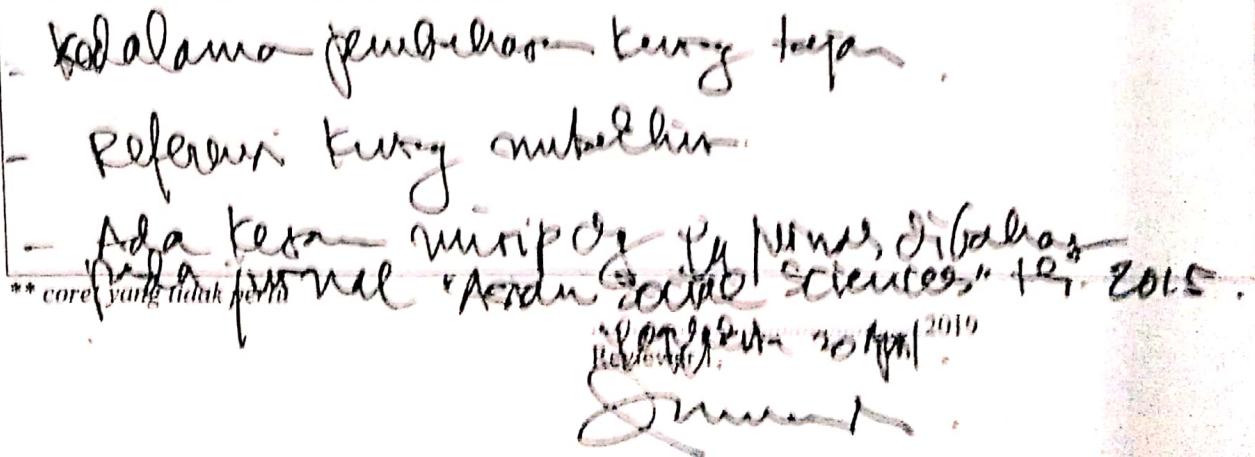 - Kedalaman pembahasan kurang tajam.
- Referensi kurang mutakhir
- Ada kesan mirip dg yg pernah dibahas
pada jurnal "Asian Social Sciences" th. 2015.
** coret yang tidak perlu
30 April 2019
Reviewer